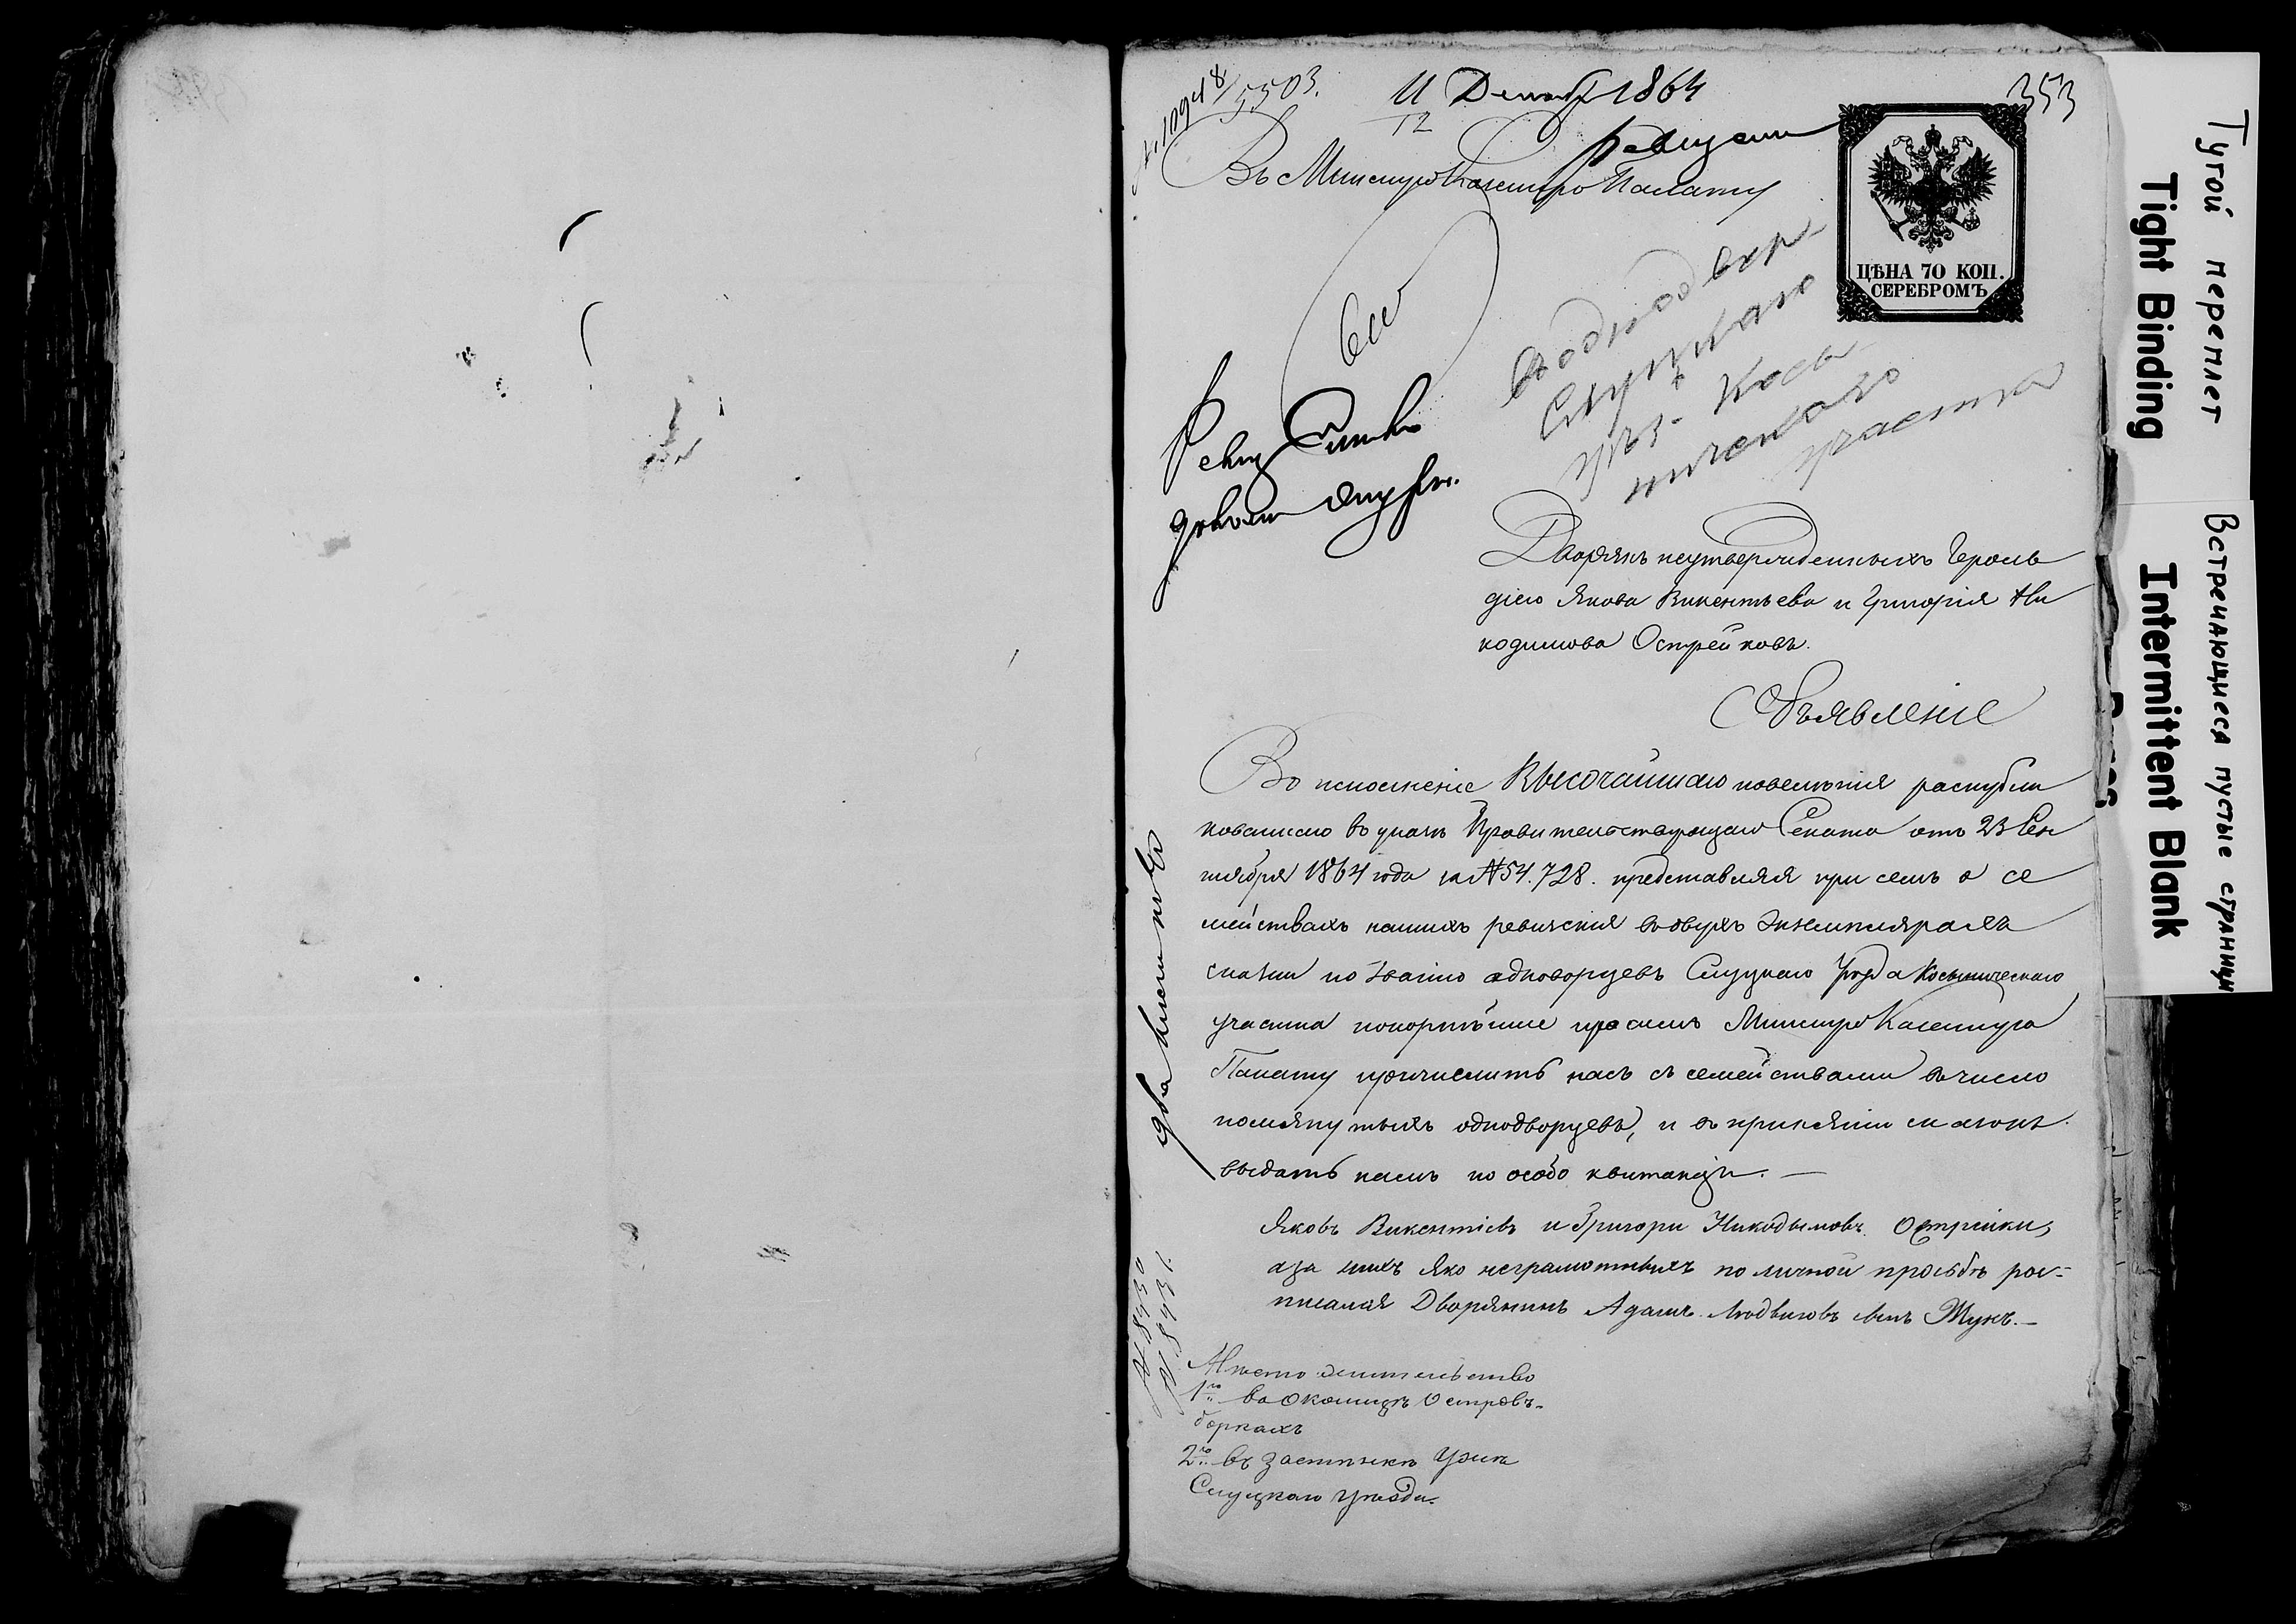 № 10948/5503.
11 Декабр 1864
12
353
Въ Минскую Казенную Палату
ЦѢНА 70 КОП.
СЕРЕБРОМЪ
в однодвор-
Слуцкаго
уѣз- Косы
ничскаго
участка
Дворянъ неутвержденныхъ Героль
діею Якова Викентьева и Григорія Ни
кодимова Острейковъ.
Объявленіе
Во исполненіе Высочайшаго повелѣнія распубли
кованнаго въ указѣ Правительствующаго Сената отъ 23 Сен
тября 1864 года за № 54.728. представляя при семъ о се
мействахъ нашихъ ревизскія въ двухъ экземплярахъ
сказки по званію однодворцевъ Слуцкаго Уѣзда Косыничскаго
участка покорнѣйше просимъ Минскую Казенную
Палату причислить насъ съ семействами въ число
помянутыхъ однодворцевъ, и въ принятіи сказокъ
выдать намъ по особо квитанціи. —
Яковъ Викентіевъ и Григори Никодымовъ Острейки,
а за нихъ яко неграмотныхъ по личной прозьбѣ рос-
писался Дворянинъ Адамъ Людвиковъ сынъ Жукъ. —
два листовъ
№ 8430
№ 8431.
Мѣсто жительство
1го во Околицѣ Островъ-
боркахъ
2го въ застѣнкѣ
Слуцкаго уѣзда.
Тугой переплет
Tight Binding
Встречающиеся пустые страницы
Intermittent Blank